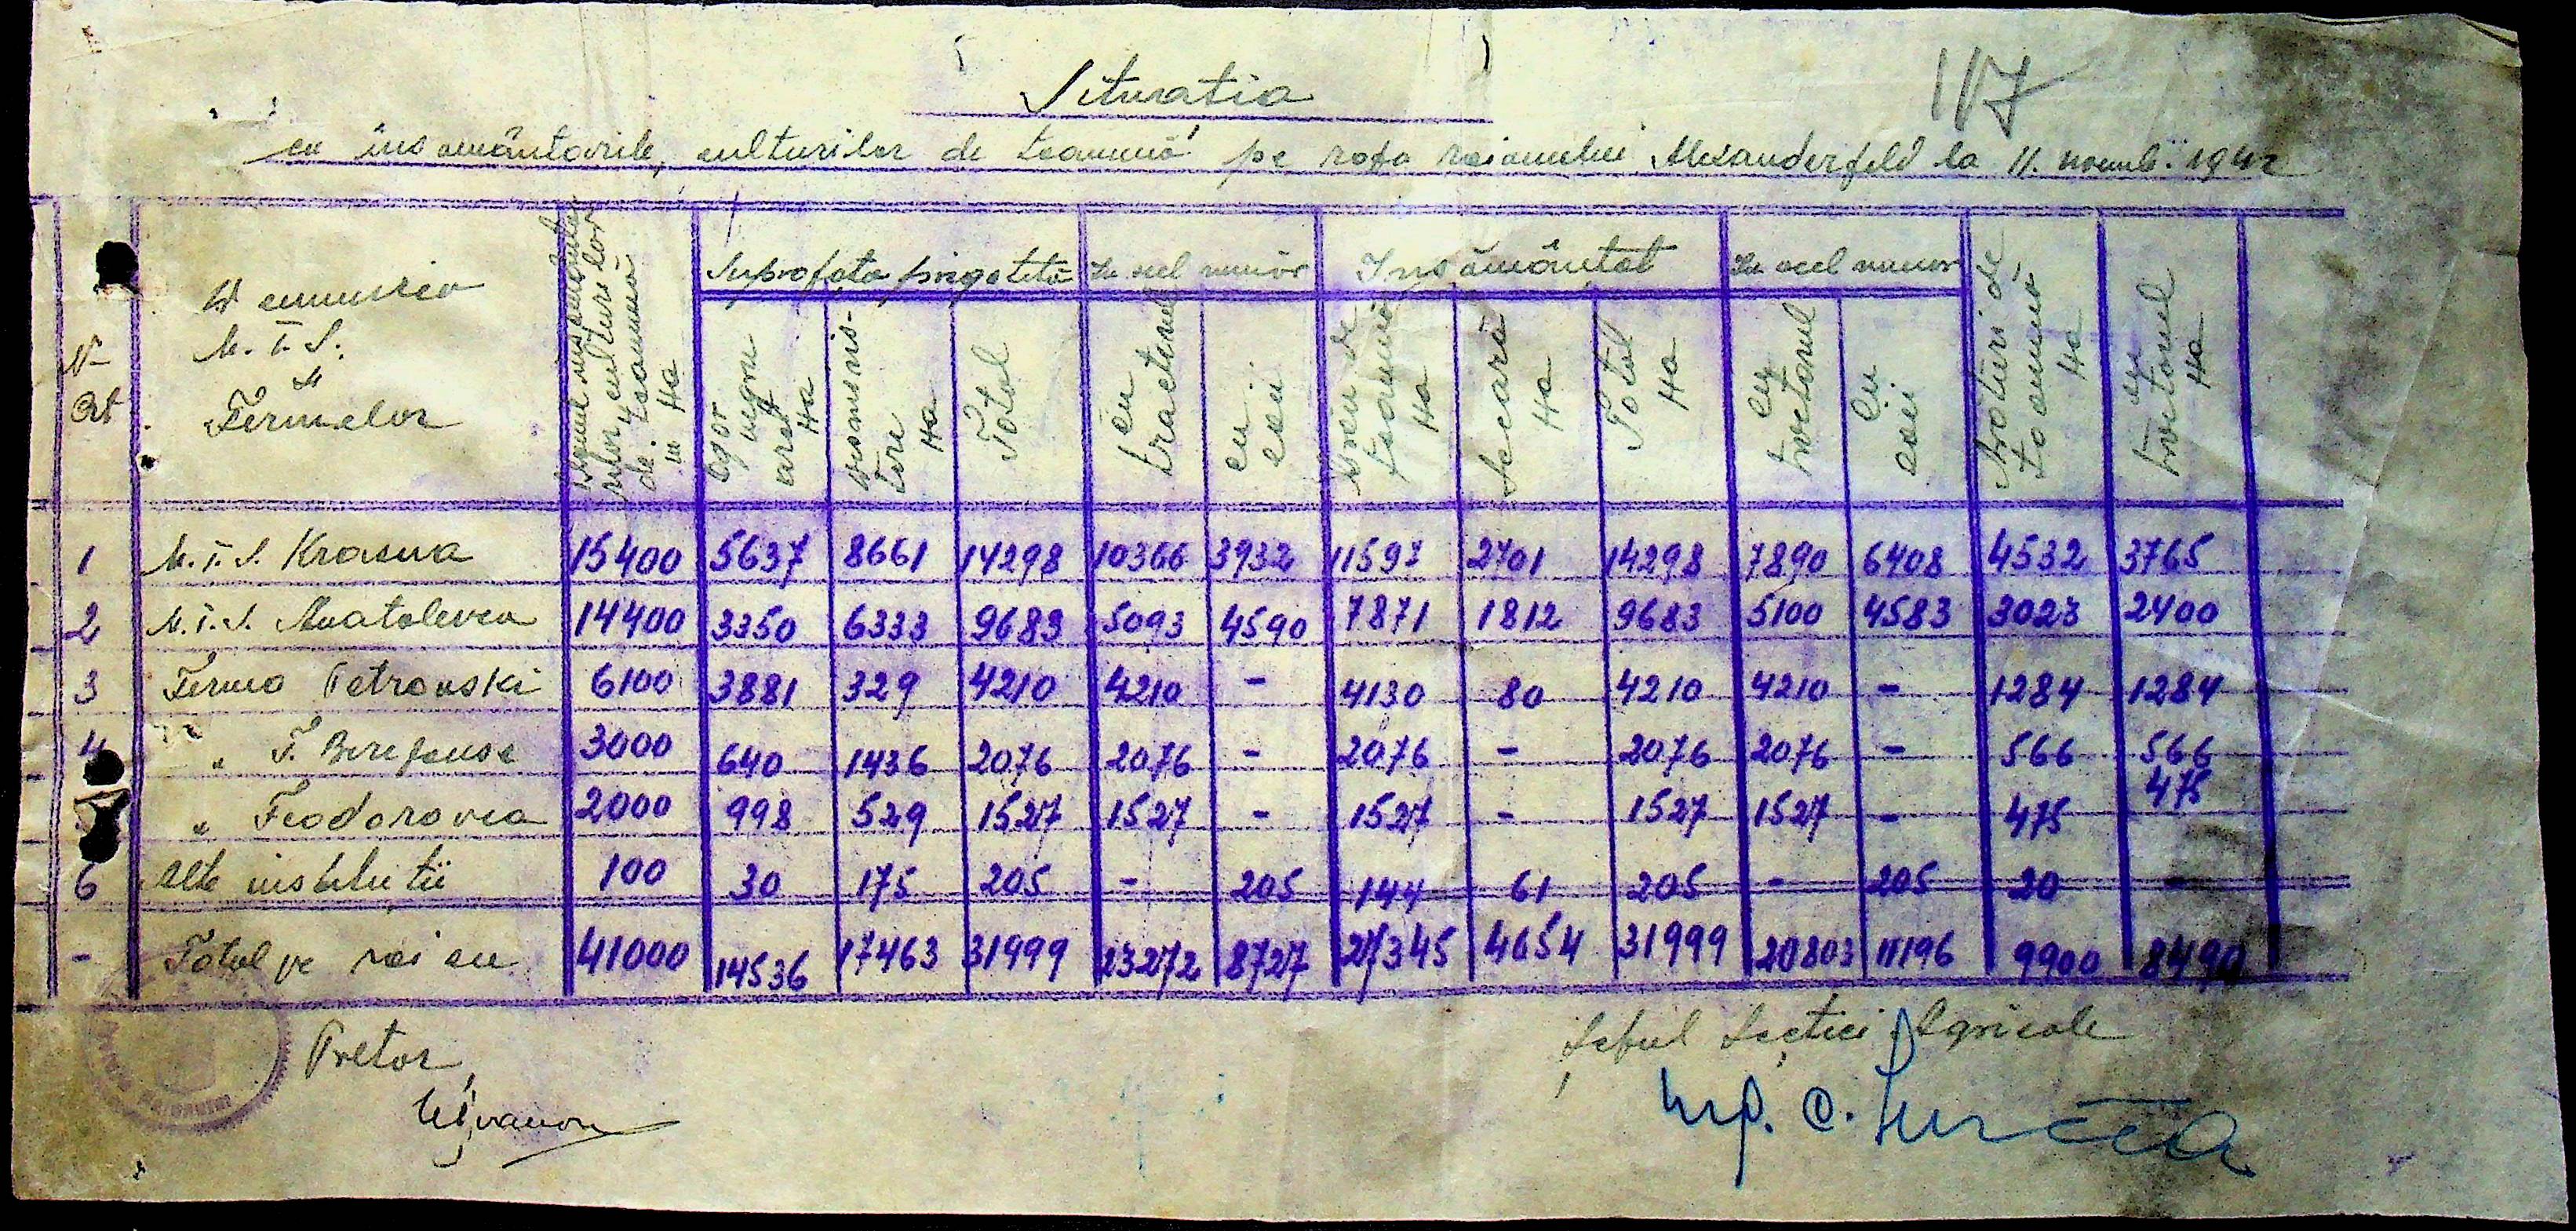 117
Situatia
cu însamântarile, culturilor de toamnă pe raza raionului Alexanderfeld la 11. noemb. 1942
N- Crt
Denumirea M.T.S. și Fermelor
Planul însamântarilor culturilor de toamnă in Ha
Suprafata pregatită
In acel numâr
Insământat
In acel numar
Araturi de toamnă Ha
cu tractorul Ha
Ogor negru arat Ha
Ha
Total
cu tractorul
cu caii
Grâu de toamnă Ha
Secară Ha
Total Ha
cu tractorul
cu caii
1 M.T.S. Krasna 15400 5637 8661 14298 10366 3932 11597 2701 14298 7890 6408 4532 3765
2 M.T.S. Anatolevca 14400 3350 6333 9683 5093 4590 7871 1812 9683 5100 4583 3023 2400
3 Ferma Petrovski 6100 3881 329 4210 4210 - 4130 80 4210 4210 - 1284 1284
4 " T. 3000 640 1436 2076 2076 - 2076 - 2076 2076 - 566 566
" Feodorovca 2000 998 529 1527 1527 - 1527 - 1527 1527 - 475 475
6 Alte institutii 100 30 175 205 - 205 144 61 205 - 205 20 -
- Total pe raion 41000 14536 17463 31999 23272 8727 27345 4654 31999 20803 11196 9900 8490
Pretor,
Șeful Secției Agricole
Ivanov
Ing. C.